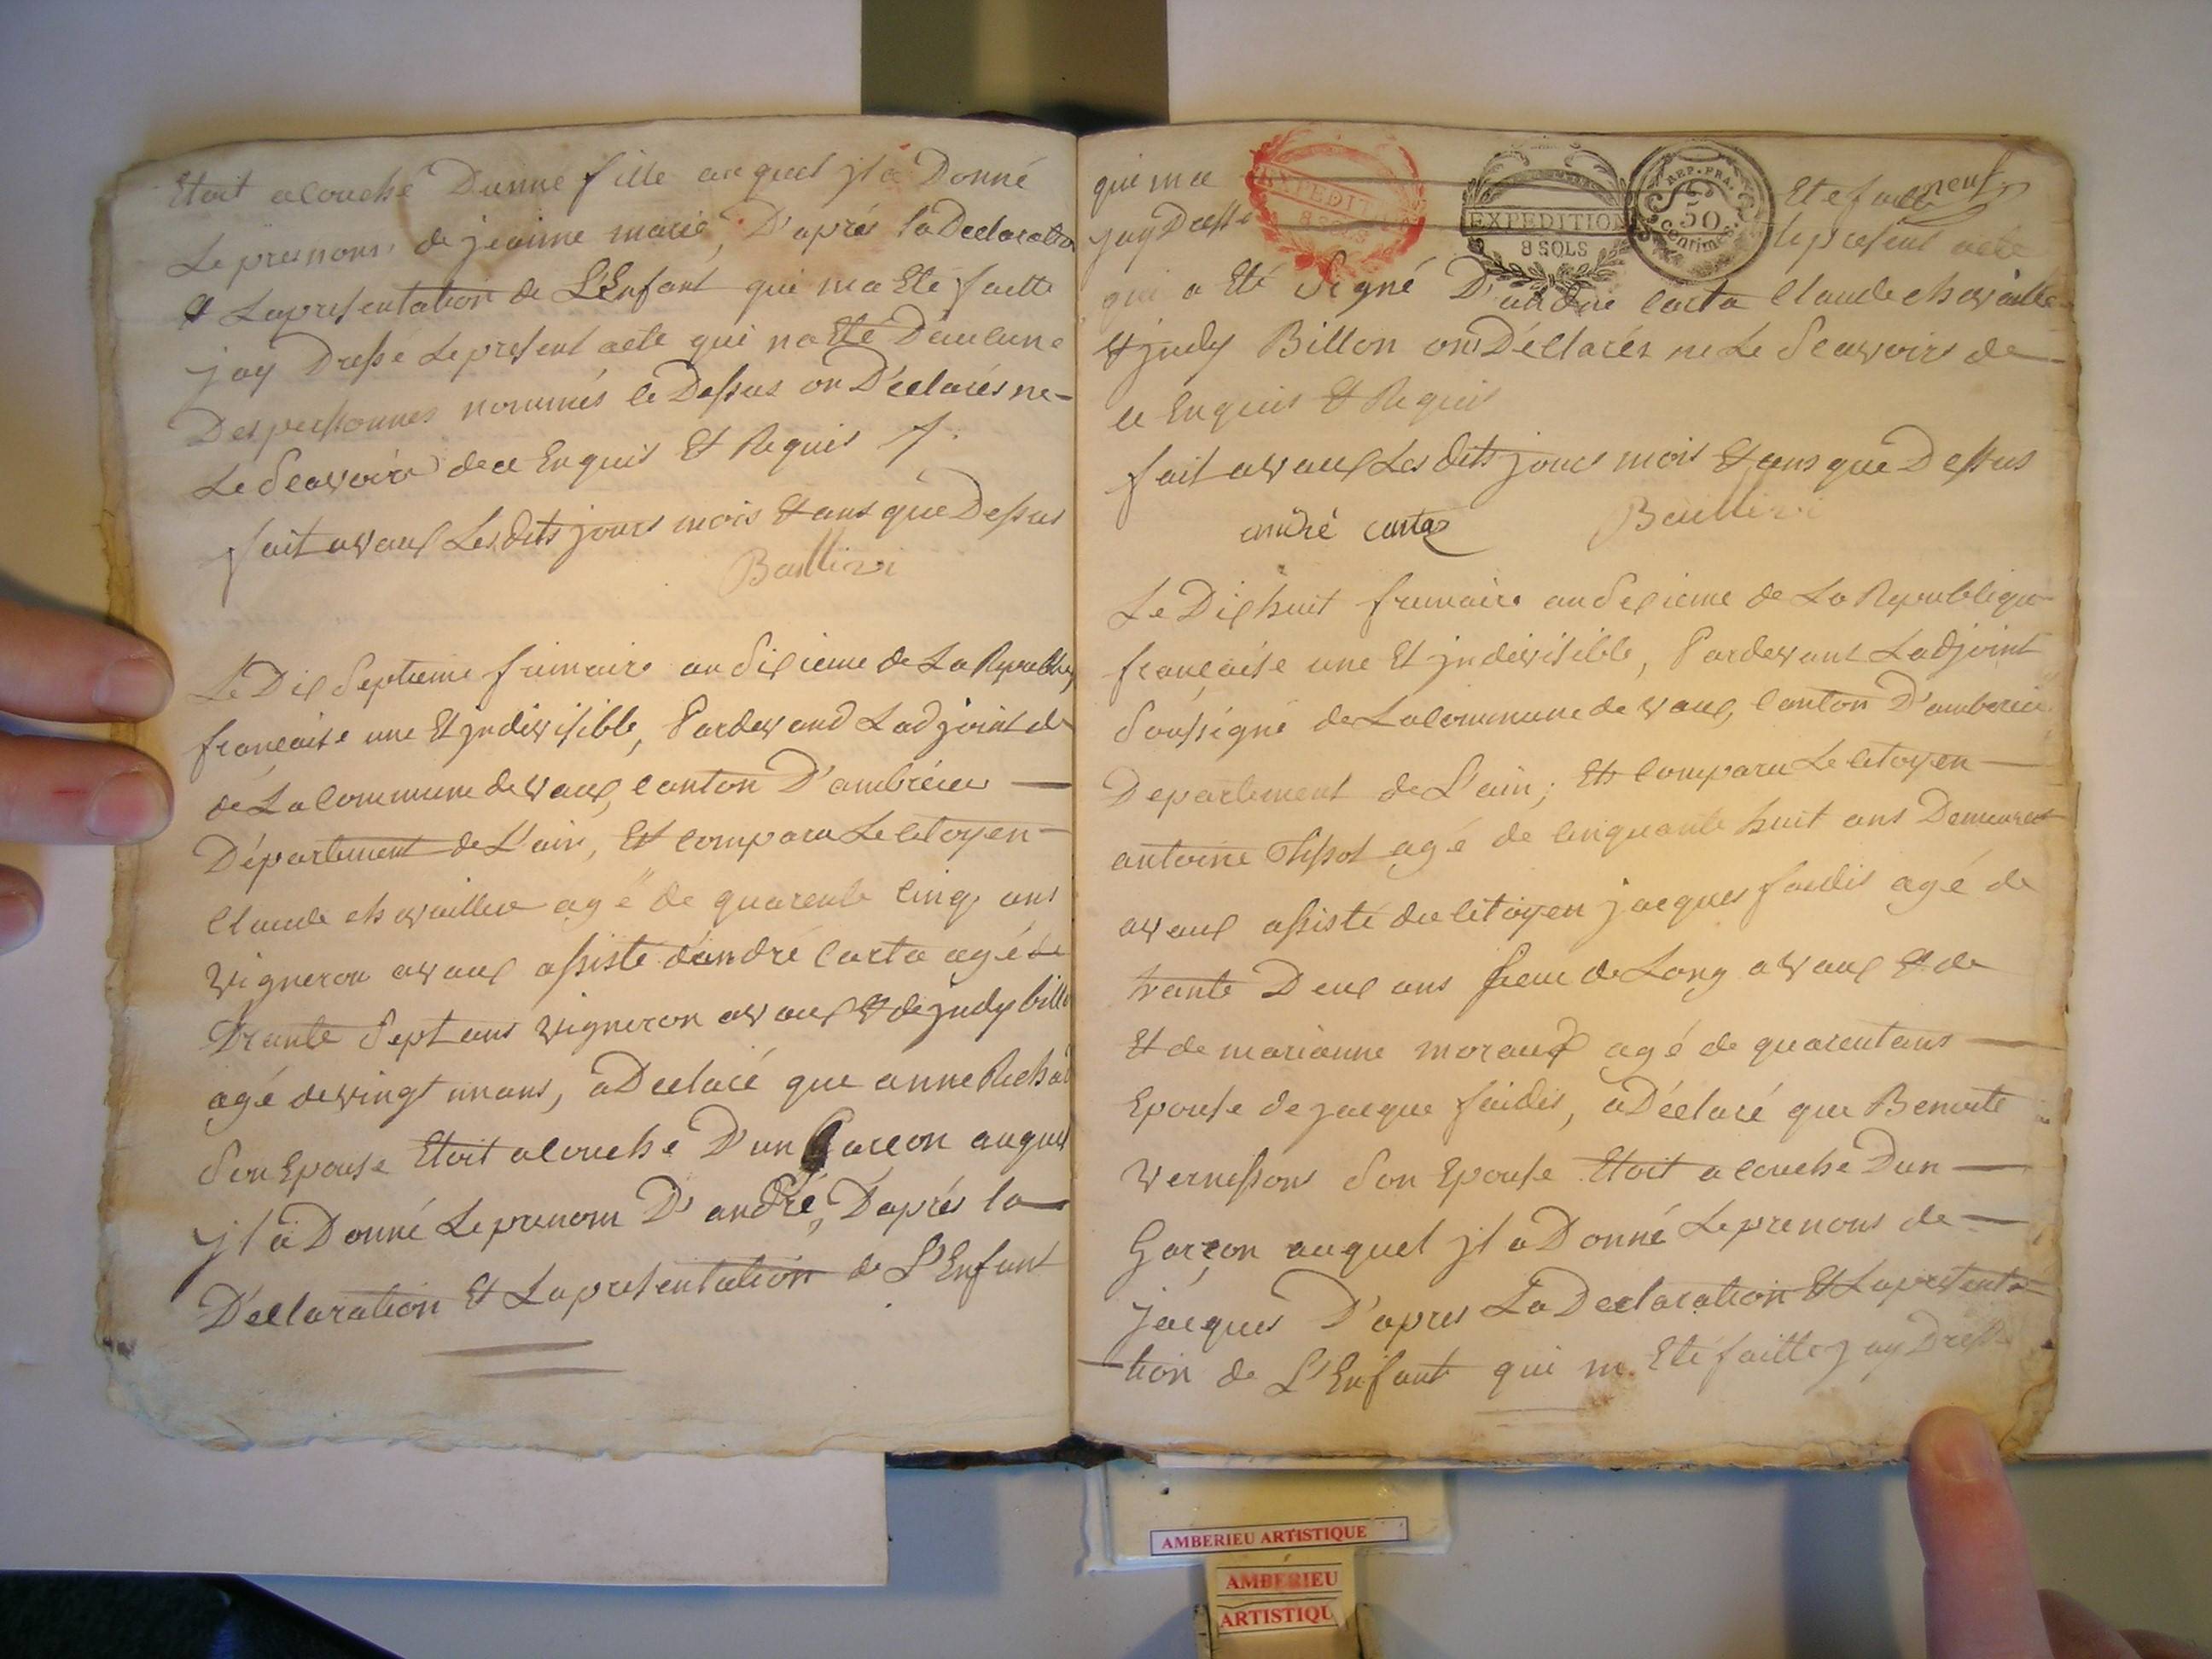 Etoit acouché Dunne fille auquel jl a Donné
Le prenoms de jeanne marie, D'aprés la Declaration
et Lapresentation de L'Enfant qui ma Eté faitte
jay Dressé Lepresent acte qui na Eté D'aucune
Des perssonnes nommés cy Dessus on D'éclarés ne
Le Scavoire de ce Enquis Et Requis
fait avaux Les dits jours mois Et ans que Dessus
Le Dix Septieme frimaire an Sixieme de La Republique
françaisse une Et jndivisible, Pardevand Ladjoint de
de La Commune de vaux, Canton D'ambérieu
Département de L'ain, Et comparu Le Citoyen
Claude chavaillee agé de quarente Cinq ans
vigneron avaux assisté d'andré Carta agé de
trante Sept ans vigneron avaux Et de judy bill
agé de vingt un ans, a Declaré que anne Richa
Son Epouse Etoit acouché D'un Garcon auquel
jl a Donné Le prenom D'andré, D'aprés la
D'eclaration Et Lapresentation de L'Enfant
qui ma Eté faitte
jay Dressé le present acte
EXPEDITION
8 SOLS
EXPEDITION
8 SOLS
REP. FRA.
50
centimes.
neuf
qui a Eté Signé D'andré Carta Claude chavaille
Et judy Billon on D'éclarés ne Le Scavoire de
ce Enquis Et Requis
fait avaux Les dits jours mois Et ans que Dessus
andré carta
Le Dix huit frimaire an Sixieme de La Republique
françaisse une Et jndivisible, Pardevant Ladjoint
Soussigné de La Commune de vaux, Canton D'amberieu
Departement de L'ain; Et Comparu Le Citoyen
antoine Tissot agé de Cinquante huit ans Demeurant
avaux assisté du Citoyen jacques faidis agé de
trante Deux ans de Long avaux Et de
Et de marianne moraux agé de quarent ans
Epouse de jacque faides, a D'éclaré que Benoite
vernissons Son Epouse Etoit acouché Dun
Garçon auquel jl a Donné Le prenons de
jacques D'apres La Declaration Et La presenta
tion de L'Enfant qui m Eté faitte jay Dressé
AMBERIEU ARTISTIQUE
AMBERIEU
ARTISTIQU